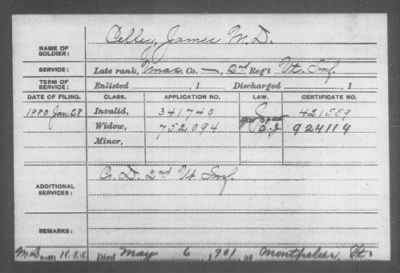 NAME OF SOLDIER: Cilley, James W. D.
SERVICE: Late rank, Co. —, 2nd Reg't Vt. Inf.
TERM OF SERVICE: Enlisted , 1 Discharged , 1
DATE OF FILING. CLASS. APPLICATION NO. LAW. CERTIFICATE NO.
1880 Jan 28 Invalid, 341740 421559
Widow, 752094 924114
Minor,
ADDITIONAL SERVICES: Co. D. 2nd Vt Inf.
REMARKS:
Died May 6, 1901, at Montpelier, Vt.